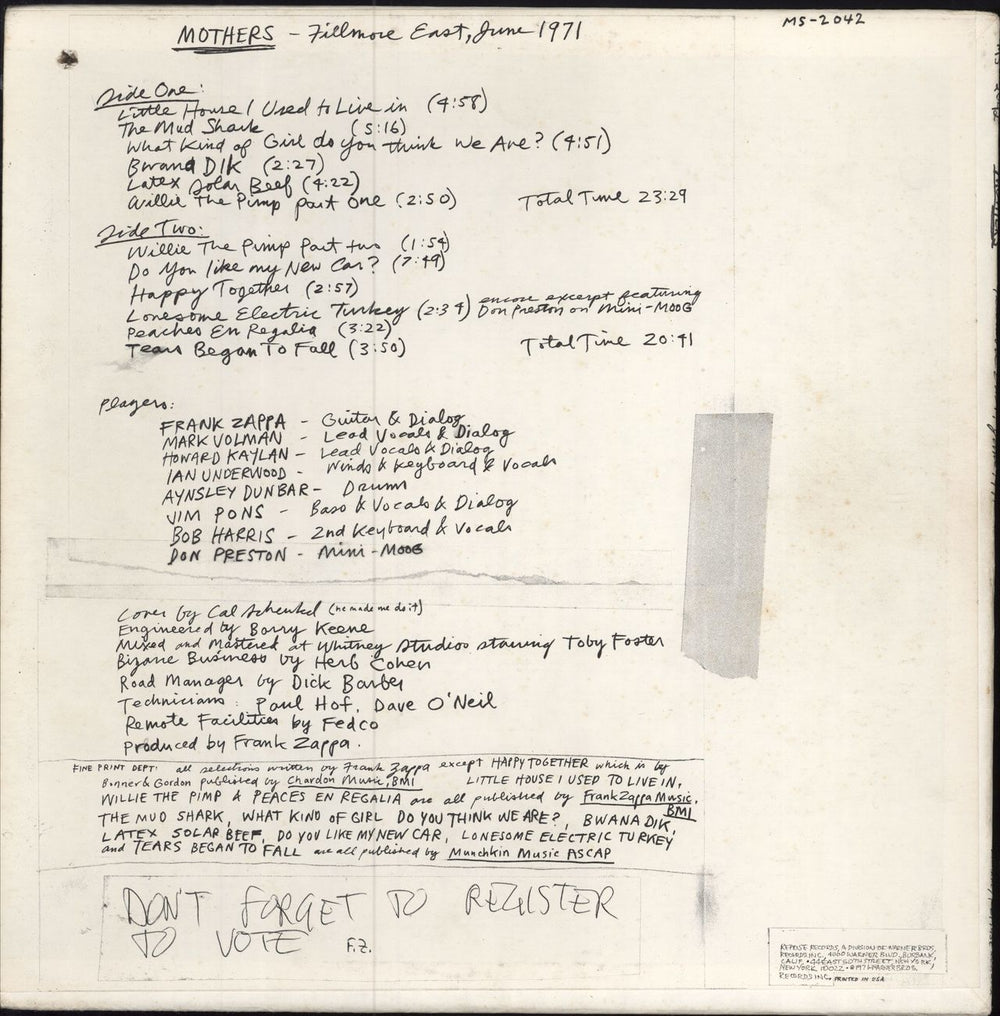 MOTHERS - Fillmore East, June 1971
MS-2042
Side One:
Little House I Used to Live in (4:58)
The Mud Shark (5:16)
What Kind of Girl do you think We Are? (4:51)
Bwana DIK (2:27)
Latex Solar Beef (4:22)
Willie The Pimp part One (2:50) Total Time 23:29
Side Two:
Willie The Pimp Part two (1:54)
Do You like my New Car? (7:49)
Happy Together (2:57)
Lonesome Electric Turkey (2:34) encore excerpt featuring
Don Preston on Mini-MOOG
Peaches En Regalia (3:22)
Tears Began To Fall (3:50) Total Time 20:41
Players:
FRANK ZAPPA - Guitar & Dialog
MARK VOLMAN - Lead Vocals & Dialog
HOWARD KAYLAN - Lead Vocals & Dialog
IAN UNDERWOOD - Winds & Keyboard & Vocals
AYNSLEY DUNBAR - Drums
JIM PONS - Bass & Vocals & Dialog
BOB HARRIS - 2nd Keyboard & Vocals
DON PRESTON - Mini-MOOG
Cover by Cal Schenkel (he made me do it)
Engineered by Barry Keene
Mixed and Mastered at Whitney Studios starring Toby Foster
Bizarre Business by Herb Cohen
Road Manager by Dick Barber
Technicians: Paul Hof, Dave O'Neil
Remote Facilities by Fedco
Produced by Frank Zappa.
FINE PRINT DEPT: all selections written by Frank Zappa except HAPPY TOGETHER which is by
Bonner & Gordon published by Chardon Music, BMI LITTLE HOUSE I USED TO LIVE IN,
WILLIE THE PIMP & PEACES EN REGALIA are all published by Frank Zappa Music,
BMI
THE MUD SHARK, WHAT KIND OF GIRL DO YOU THINK WE ARE?, BWANA DIK,
LATEX SOLAR BEEF, DO YOU LIKE MY NEW CAR, LONESOME ELECTRIC TURKEY
and TEARS BEGAN TO FALL are all published by Munchkin Music ASCAP
DON'T FORGET TO REGISTER
TO VOTE F.Z.
REPRISE RECORDS, A DIVISION OF WARNER BROS.
RECORDS INC. 4000 WARNER BLVD., BURBANK,
CALIF. • 44 EAST 50TH STREET, NEW YORK,
NEW YORK 10022 • ℗ 1971 WARNER BROS.
RECORDS INC. PRINTED IN USA